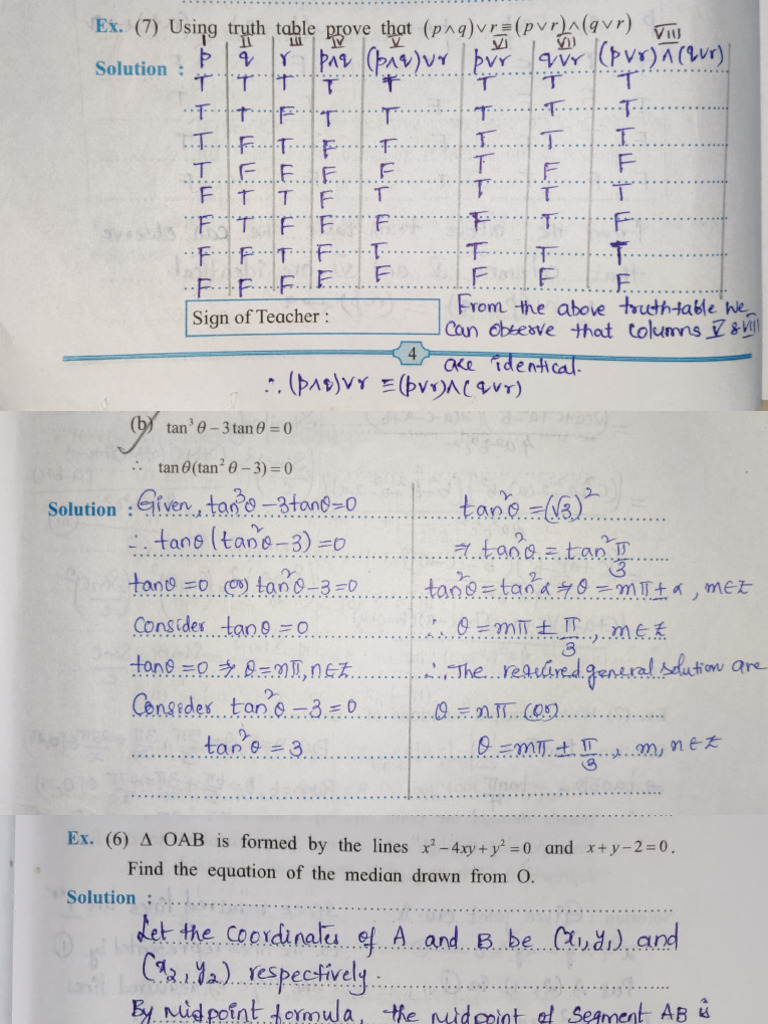 Ex. (7) Using truth table prove that (p∧q)∨r≡(p∨r)∧(q∨r)
I II III IV V VI VII VIII
Solution : p q r p∧q (p∧q)∨r p∨r q∨r (p∨r)∧(q∨r)
T T T T T T T T
T T F T T T T T
T F T F T T T T
T F F F F T F F
F T T F T T T T
F T F F F F T F
F F T F T T T T
F F F F F F F F
Sign of Teacher :
From the above truth-table we
can observe that columns V & VIII
are identical.
4
∴ (p∧q)∨r ≡ (p∨r)∧(q∨r)
(b) tan³θ − 3 tan θ = 0
∴ tan θ(tan²θ − 3) = 0
Solution : Given, tan³θ − 3tanθ = 0
∴ tanθ (tan²θ − 3) = 0
tanθ = 0 (or) tan²θ − 3 = 0
Consider tanθ = 0
tanθ = 0 ⇒ θ = nπ, n∈Z
Consider tan²θ − 3 = 0
tan²θ = 3
tan²θ = (√3)²
⇒ tan²θ = tan² π/3
tan²θ = tan²α ⇒ θ = mπ ± α, m∈Z
∴ θ = mπ ± π/3, m∈Z
∴ The required general solution are
θ = nπ (or)
θ = mπ ± π/3, m, n∈Z
Ex. (6) Δ OAB is formed by the lines x² − 4xy + y² = 0 and x + y − 2 = 0.
Find the equation of the median drawn from O.
Solution :
Let the coordinates of A and B be (x₁,y₁) and
(x₂,y₂) respectively.
By Midpoint formula, the midpoint of segment AB is